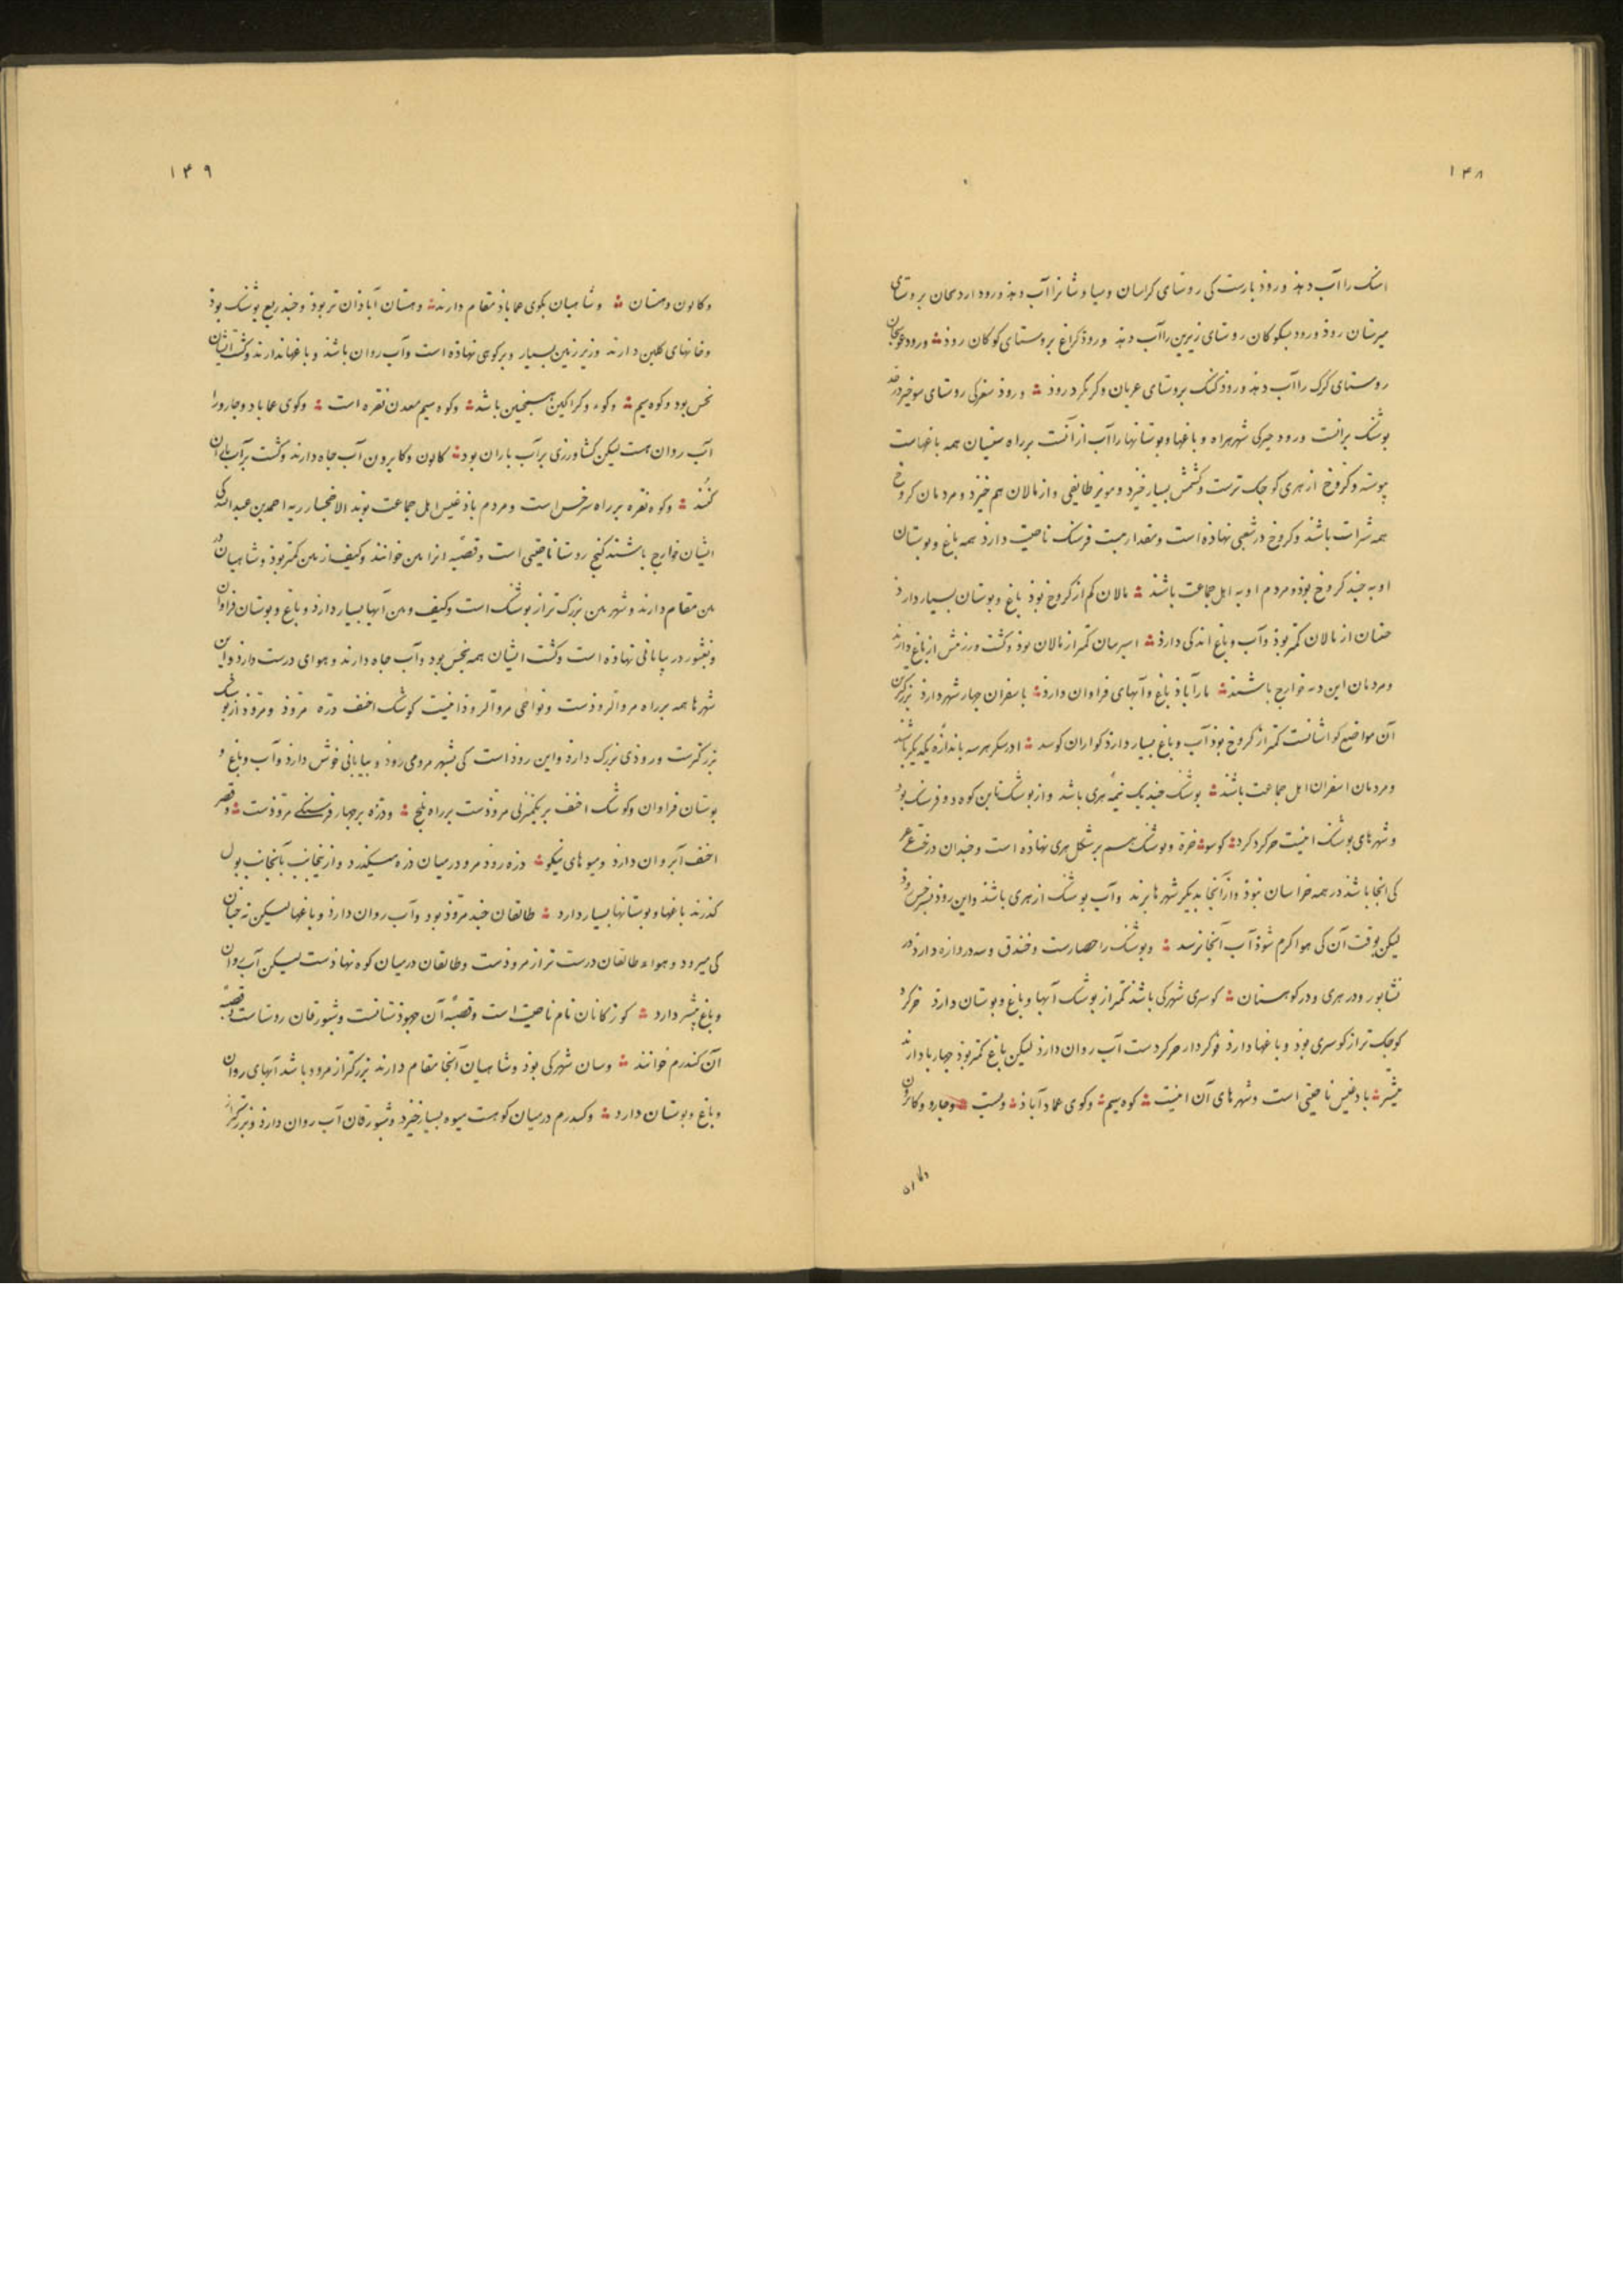 ۱۴۸
اسنک را آب دهذ و روذ بارست کی روستای کراسان و سیاوشانرا آب دهذ و رود اردنجان بروستای
میرستان روذ و رود سکوکان روستای زیرین را آب دهذ و روذ کراغ بروستای کوکان روذ ؞ و رود غوسجان
روستای کرک را آب دهذ و روذ کنک بروستای عربان و کر کرد روذ ؞ و روذ سغر کی روستای سوخیز در حد
بوشنک برانست و رود جیر کی شهر هراه و باغها و بوستانها را آب از آنست بر راه سیستان همه باغهاست
پیوسته و کروخ از هری کوجک ترست و کشمش بسیار خیزد و مویز طایفی و از مالان هم خیزد و مردمان کروخ
همه شرات باشند و کروخ در شعبی نهاذه است و مقدار بیست فرسنک ناحیت دارذ همه باغ و بوستان
اوبه جند کروخ بوذ و مردم اوبه اهل جماعت باشند ؞ مالان کم از کروخ بوذ باغ و بوستان بسیار دارذ
خیسان از مالان کمتر بوذ و آب و باغ اندکی دارذ ؞ استربیان کمتر از مالان بوذ و کشت و ورزش از باغ دارند
و مردمان این ده خوارج باشند ؞ ماراباذ باغ و آبهای فراوان دارذ ؞ باسفزان جهار شهر دارذ بزرکترین
آن مواضع کواشانست کمتر از کروخ بوذ آب و باغ بسیار دارذ کواران کوشد ؞ ادرسکر هر سه باندازه یکدیکر باشند
و مردمان اسفزان اهل جماعت باشند ؞ بوشنک جند یک نیمهٔ هری باشد و از بوشنک تا بن کوه دو فرسنک بوذ
و شهرهای بوشنک اینست خرکرد کرد ؞ کوسو ؞ خره و بوشنک هم بر شکل هری نهاذه است و جندان درخت عرعر
کی آنجا باشد در همه خراسان نبوذ و از آنجا بدیکر شهرها برند و آب بوشنک از هری باشد و این روذ بسرخس روذ
لیکن بوقت آن کی هوا کرم شوذ آب آنجا نرسد ؞ و بوشنک را حصارست و خندق و سه دروازه دارذ در
نشابور و در هری و در کوهستان ؞ کوسری شهرکی باشد کمتر از بوشنک آبها و باغ و بوستان دارذ خرکرد
کوجک تر از کوسری بوذ و باغها دارذ فرکرد از خرکردست آب روان دارذ لیکن باغ کمتر بوذ جهارپا دارند
بیشتر ؞ باذغیس ناحیتی است و شهرهای آن اینست ؞ کوه سیم ؞ و کوی عماد آباذ ؞ و بست ؞ و جاذو و کابرون
و کالون
۱۴۹
و کالون و دهستان ؞ و شاهیان بکوی عماباذ مقام دارند ؞ دهستان آباذان تر بوذ و جند ربع بوشنک بوذ
و خانهای کلین دارند و زیر زمین بسیار و بر کوهی نهاذه است و آب روان باشد و باغها ندارند و کشت ایشان
بخس بود و کوه سیم ؞ و کوه و کراکین همجنین باشد ؞ و کوه سیم معدن نقره است ؞ و کوی عماباد و جاذو را
آب روان هست لیکن کشاورزی بر آب باران بود ؞ کالون و کابرون آب جاه دارند و کشت بر آب باران
کنند ؞ و کوه نقره بر راه سرخس است و مردم باذغیس اهل جماعت بوند الا خجستان ریه احمد بن عبدالله کی
ایشان خوارج باشند کنج روستا ناحیتی است و قصبهٔ انرا ببن خوانند و کیف از ببن کمتر بوذ و شاهیان در
ببن مقام دارند و شهر ببن بزرک تر از بوشنک است و کیف و ببن آبها بسیار دارذ و باغ و بوستان فراوان
و بغشور در بیابانی نهاذه است و کشت ایشان همه بخس بود و آب جاه دارند و هوای درست دارد و این
شهرها همه بر راه مروالروذست و نواحی مروالروذ اینست کوشک احنف دزه مروذ و مروذ از بوشنک
بزرکترست و روذی بزرک دارذ و این روذ است کی بشهر مرو می روذ و بیابانی خوش دارذ و آب و باغ و
بوستان فراوان و کوشک احنف بر یکمنزلی مروذست بر راه بلخ ؞ و دزه بر جهار فرسنکی مروذست ؞ و قصر
احنف آب روان دارذ و میوهای نیکو ؞ دزه روذ مرو در میان دزه میکذرد و از یخانب بآنجانب بپول
کذرند باغها و بوستانها بسیار دارد ؞ طالقان جند مروذ بود و آب روان دارذ و باغها لیکن نه جنان
کی میرود و هواء طالقان درست تر از مروذست و طالقان در میان کوه نهاذست لیکن آب روان
و باغ بیشتر دارد ؞ کوزکانان نام ناحیت است و قصبهٔ آن جهوذستانست و شبورقان روستاست و قصبهٔ
آن کندرم خوانند ؞ وسان شهرکی بوذ و شاهیان آنجا مقام دارند بزرکتر از مروذ باشد آبهای روان
و باغ و بوستان دارد ؞ و کندرم در میان کوهست میوه بسیار خیزد و شبورقان آب روان دارذ و بزرکتر از